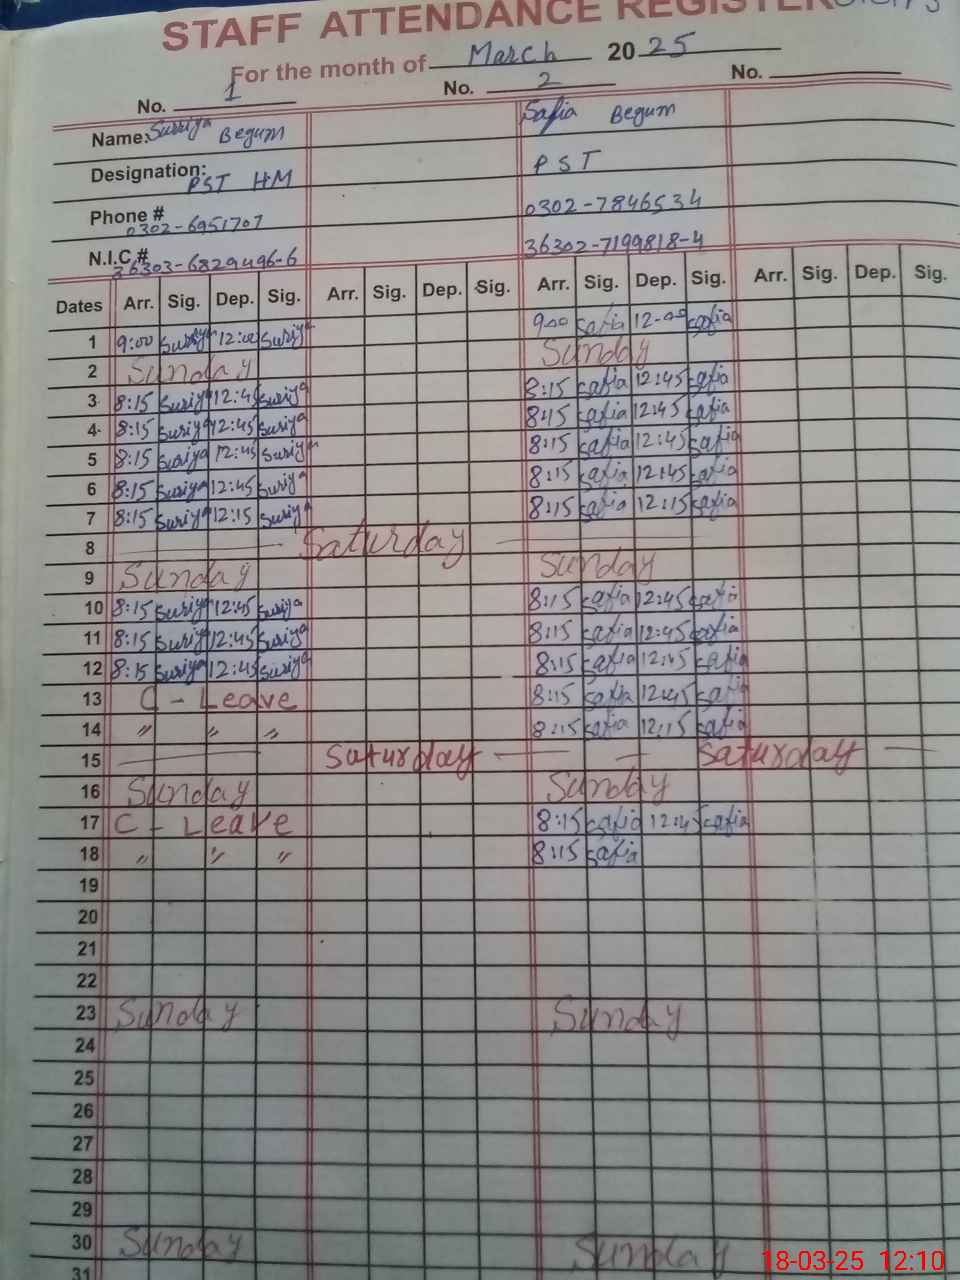 STAFF ATTENDANCE REGISTER
For the month of March 2025
No. 1 No. 2 No.
Name: Surriya Begum Safia Begum
Designation: PST HM PST
Phone # 0302-6951707 0302-7846534
N.I.C.# 36303-6829496-6 36302-7199818-4
Dates Arr. Sig. Dep. Sig. Arr. Sig. Dep. Sig. Arr. Sig. Dep. Sig. Arr. Sig. Dep. Sig.
1 9:00 Suriya 12:00 Suriya 9:00 Safia 12:00 Safia
2 Sunday Sunday
3 8:15 Suriya 12:45 Suriya 8:15 Safia 12:45 Safia
4 8:15 Suriya 12:45 Suriya 8:15 Safia 12:45 Safia
5 8:15 Suriya 12:45 Suriya 8:15 Safia 12:45 Safia
6 8:15 Suriya 12:45 Suriya 8:15 Safia 12:45 Safia
7 8:15 Suriya 12:15 Suriya 8:15 Safia 12:15 Safia
8 Saturday
9 Sunday Sunday
10 8:15 Suriya 12:45 Suriya 8:15 Safia 12:45 Safia
11 8:15 Suriya 12:45 Suriya 8:15 Safia 12:45 Safia
12 8:15 Suriya 12:45 Suriya 8:15 Safia 12:45 Safia
13 C - Leave 8:15 Safia 12:45 Safia
14 " " " 8:15 Safia 12:15 Safia
15 Saturday Saturday
16 Sunday Sunday
17 C - Leave 8:15 Safia 12:45 Safia
18 " " " 8:15 Safia
19
20
21
22
23 Sunday Sunday
24
25
26
27
28
29
30 Sunday Sunday
31
18-03-25 12:10